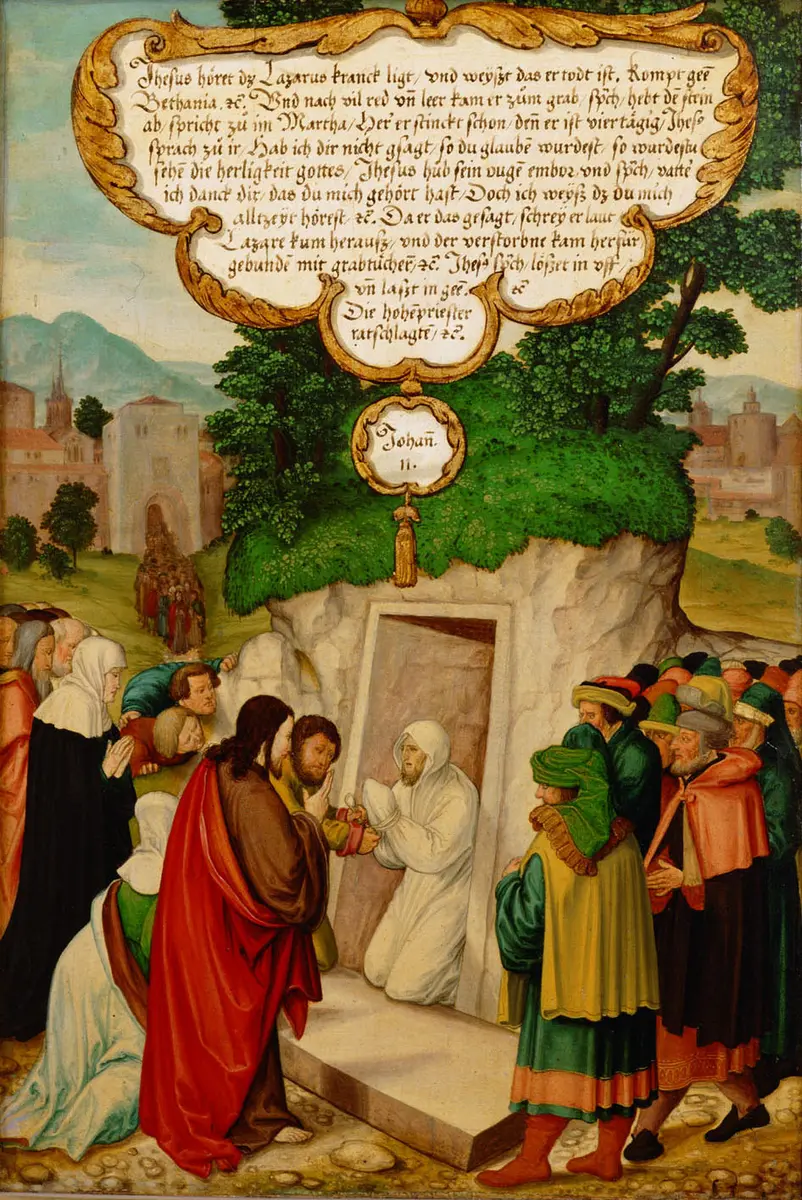 Jhesus höret dz Lazarus kranck ligt / vnd weyßt das er todt ist, Kompt geē
Bethania, ꝛc̄. Vnd nach vil red vn̄ leer kam er zům grab / spc̄h / hebt dē stein
ab / spricht zů im Martha / Her er stinckt schon / den̄ er ist viertägig / Jheso
sprach zů ir / Hab ich dir nicht gsagt / so du glaubē wurdest / so wurdestu
sehēn die herligkeit gottes / Jhesus hůb sein ougē embor / vnd spc̄h / vatt̄e
ich danck dir / das du mich gehört hast / Doch ich weyß dz du mich
alltzeyt hörest / ꝛc̄. Da er das gesagt / schrey er laut
Lazare kum herauß / vnd der verstorbne kam herfür
gebundē mit grabtüchēr / ꝛc̄. Jheso spc̄h / lößet in vff /
vn̄ laßt in geē. ꝛc̄
Die hohēpriester
ratschlagtē / ꝛc̄.
Johan̄.
11.